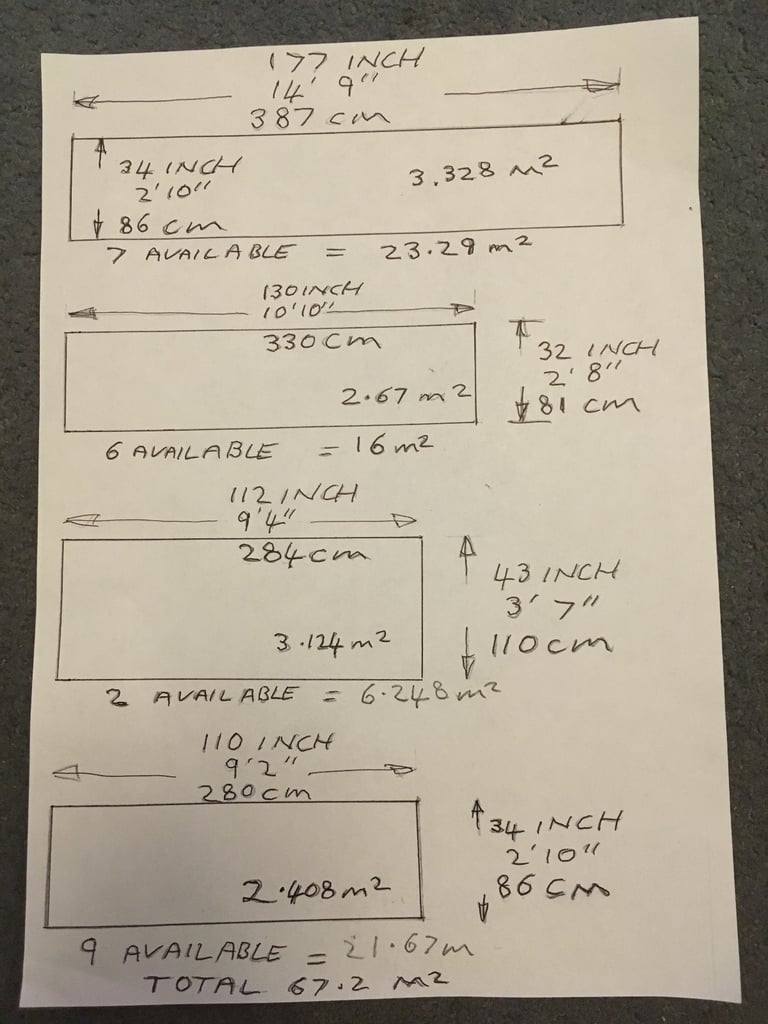 177 INCH
14' 9"
387 cm
34 INCH
2'10"
86 cm
3.328 m²
7 AVAILABLE = 23.29 m²
130 INCH
10'10"
330 cm
2.67 m²
32 INCH
2' 8"
81 cm
6 AVAILABLE = 16 m²
112 INCH
9'4"
284 cm
3.124 m²
43 INCH
3' 7"
110 cm
2 AVAILABLE = 6.248 m²
110 INCH
9'2"
280 cm
2.408 m²
34 INCH
2'10"
86 cm
9 AVAILABLE = 21.67 m
TOTAL 67.2 m²